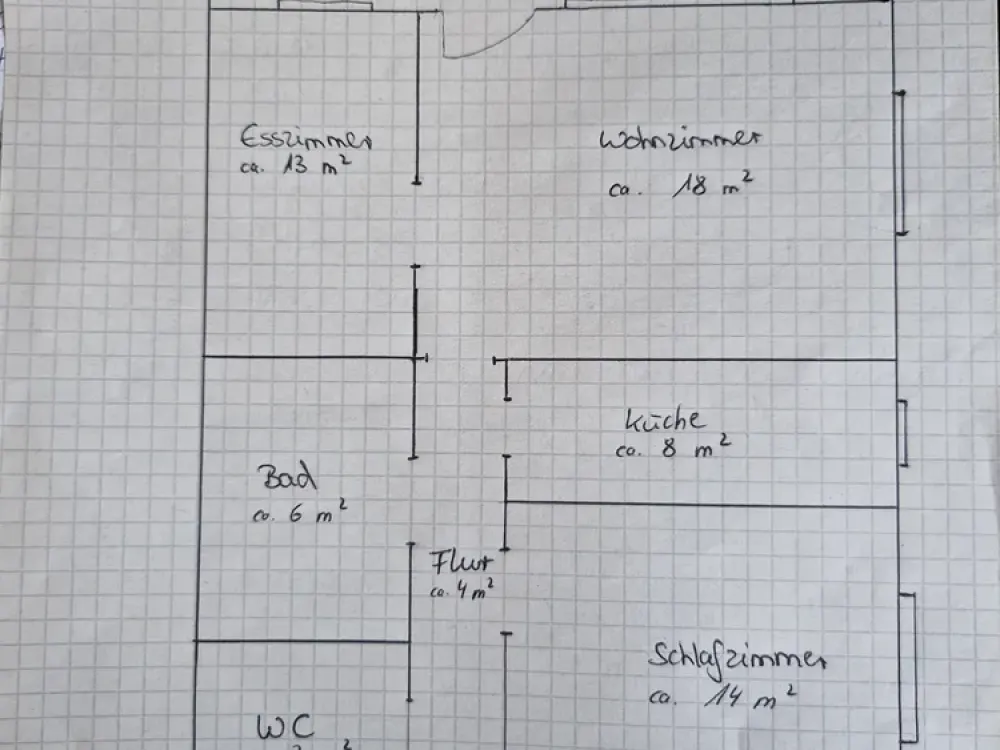 Esszimmer
ca. 13 m²
Wohnzimmer
ca. 18 m²
Küche
ca. 8 m²
Bad
ca. 6 m²
Flur
ca. 4 m²
Schlafzimmer
ca. 14 m²
WC